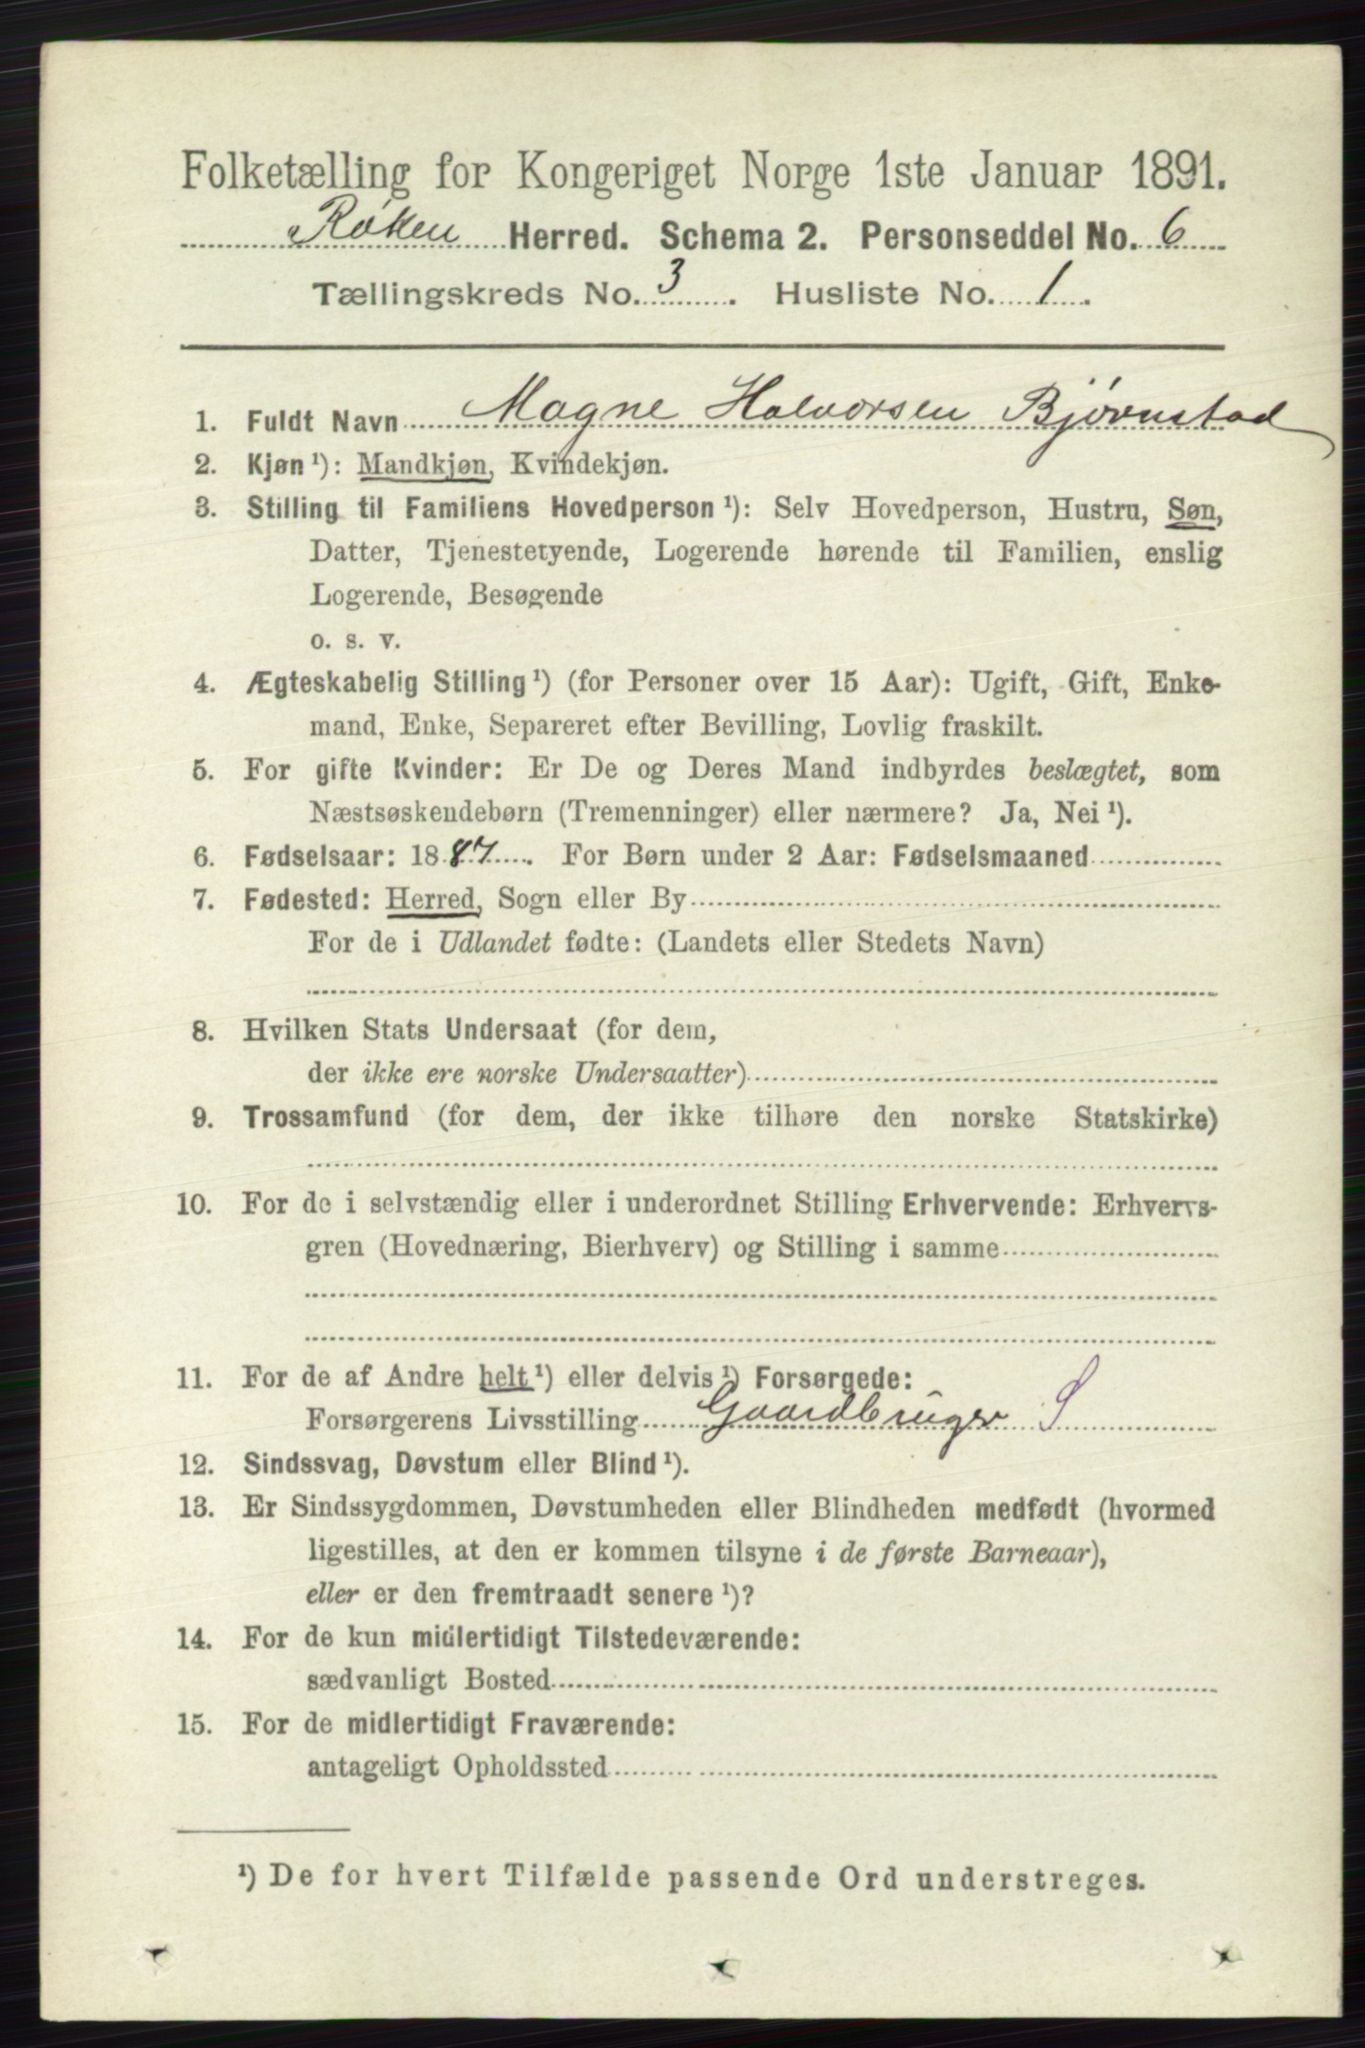 Folketælling for Kongeriget Norge 1ste Januar 1891.
Røken Herred. Schema 2. Personseddel No. 6
Tællingskreds No. 3. Husliste No. 1.
1. Fuldt Navn Magne Halvorsen Bjørnstad
2. Kjøn ¹): Mandkjøn, Kvindekjøn.
3. Stilling til Familiens Hovedperson ¹): Selv Hovedperson, Hustru, Søn,
Datter, Tjenestetyende, Logerende hørende til Familien, enslig
Logerende, Besøgende
o. s. v.
4. Ægteskabelig Stilling ¹) (for Personer over 15 Aar): Ugift, Gift, Enke-
mand, Enke, Separeret efter Bevilling, Lovlig fraskilt.
5. For gifte Kvinder: Er De og Deres Mand indbyrdes beslægtet, som
Næstsøskendebørn (Tremenninger) eller nærmere? Ja, Nei ¹).
6. Fødselsaar: 1887. For Børn under 2 Aar: Fødselsmaaned
7. Fødested: Herred, Sogn eller By
For de i Udlandet fødte: (Landets eller Stedets Navn)
8. Hvilken Stats Undersaat (for dem,
der ikke ere norske Undersaatter)
9. Trossamfund (for dem, der ikke tilhøre den norske Statskirke)
10. For de i selvstændig eller i underordnet Stilling Erhvervende: Erhvervs-
gren (Hovednæring, Bierhverv) og Stilling i samme
11. For de af Andre helt ¹) eller delvis ¹) Forsørgede:
Forsørgerens Livsstilling Gaardbruger S
12. Sindssvag, Døvstum eller Blind ¹).
13. Er Sindssygdommen, Døvstumheden eller Blindheden medfødt (hvormed
ligestilles, at den er kommen tilsyne i de første Barneaar),
eller er den fremtraadt senere ¹)?
14. For de kun midlertidigt Tilstedeværende:
sædvanligt Bosted
15. For de midlertidigt Fraværende:
antageligt Opholdssted
¹) De for hvert Tilfælde passende Ord understreges.